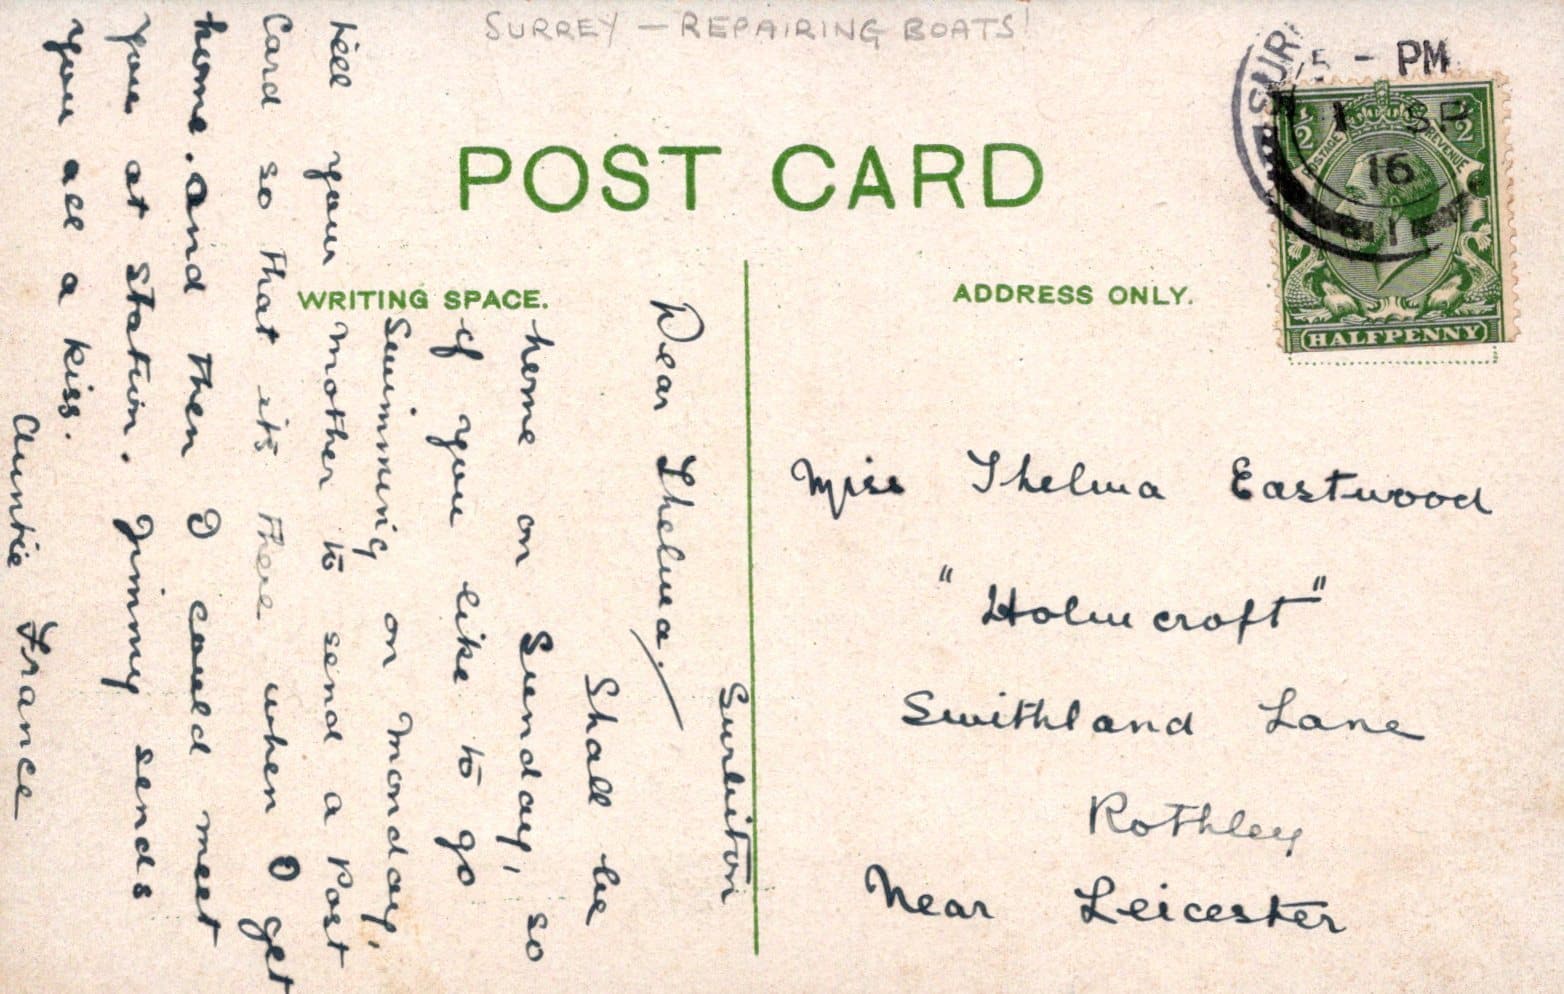 SURREY — REPAIRING BOATS!
POST CARD
WRITING SPACE.
ADDRESS ONLY.
SUR
5 - PM
1 SP
16
½ ½
POSTAGE REVENUE
HALFPENNY
Surbiton
Dear Thelma,
Shall be
home on Sunday, so
if you like to go
Swimming on Monday,
tell your mother to send a Post
Card so that it's there when I get
home. and then I could meet
you at station. Jimmy sends
you all a kiss.
Auntie France
Miss Thelma Eastwood
"Holmcroft"
Swithland Lane
Rothley
Near Leicester